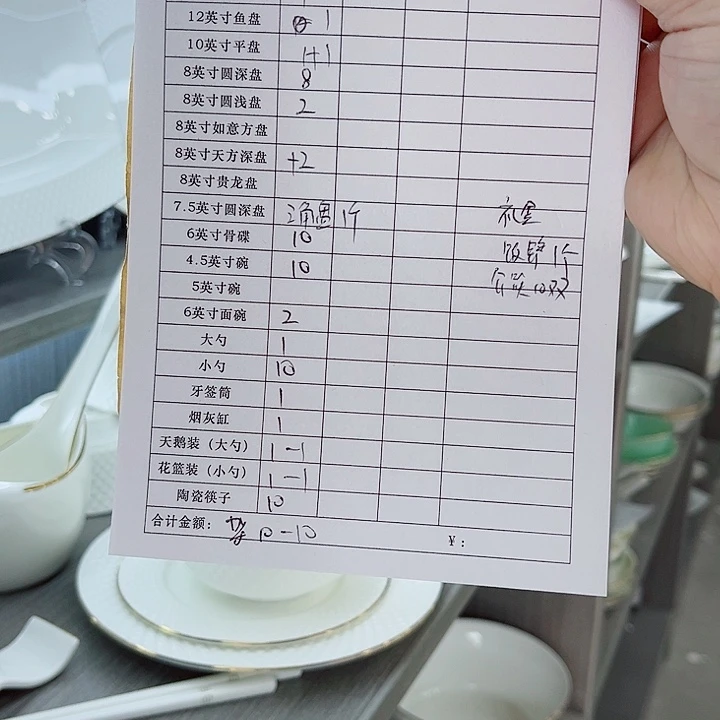 12英寸鱼盘 1
10英寸平盘 1+1
8英寸圆深盘 8
8英寸圆浅盘 2
8英寸如意方盘
8英寸天方深盘 +2
8英寸贵龙盘
7.5英寸圆深盘 1个
6英寸骨碟 10
4.5英寸碗 10 1个
5英寸碗 10双
6英寸面碗 2
大勺 1
小勺 10
牙签筒 1
烟灰缸 1
天鹅装（大勺） 1-1
花篮装（小勺） 1-1
陶瓷筷子 10
合计金额： 10-10 ¥：